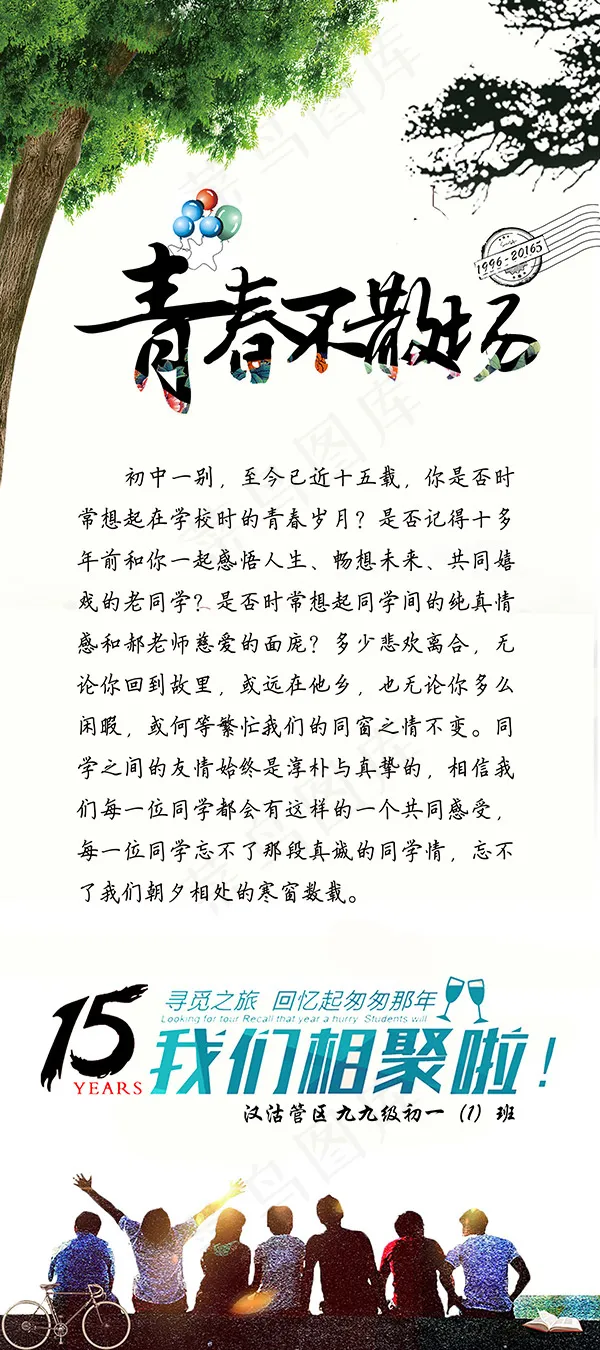 1996-20165
青春不散场
初中一别，至今已近十五载，你是否时
常想起在学校时的青春岁月？是否记得十多
年前和你一起感悟人生、畅想未来、共同嬉
戏的老同学？是否时常想起同学间的纯真情
感和郝老师慈爱的面庞？多少悲欢离合，无
论你回到故里，或远在他乡，也无论你多么
闲暇，或何等繁忙我们的同窗之情不变。同
学之间的友情始终是淳朴与真挚的，相信我
们每一位同学都会有这样的一个共同感受，
每一位同学忘不了那段真诚的同学情，忘不
了我们朝夕相处的寒窗数载。
15
YEARS
寻觅之旅 回忆起匆匆那年
Looking for tour Recall that year a hurry Students will
我们相聚啦！
汉沽管区九九级初一（1）班
菜鸟图库